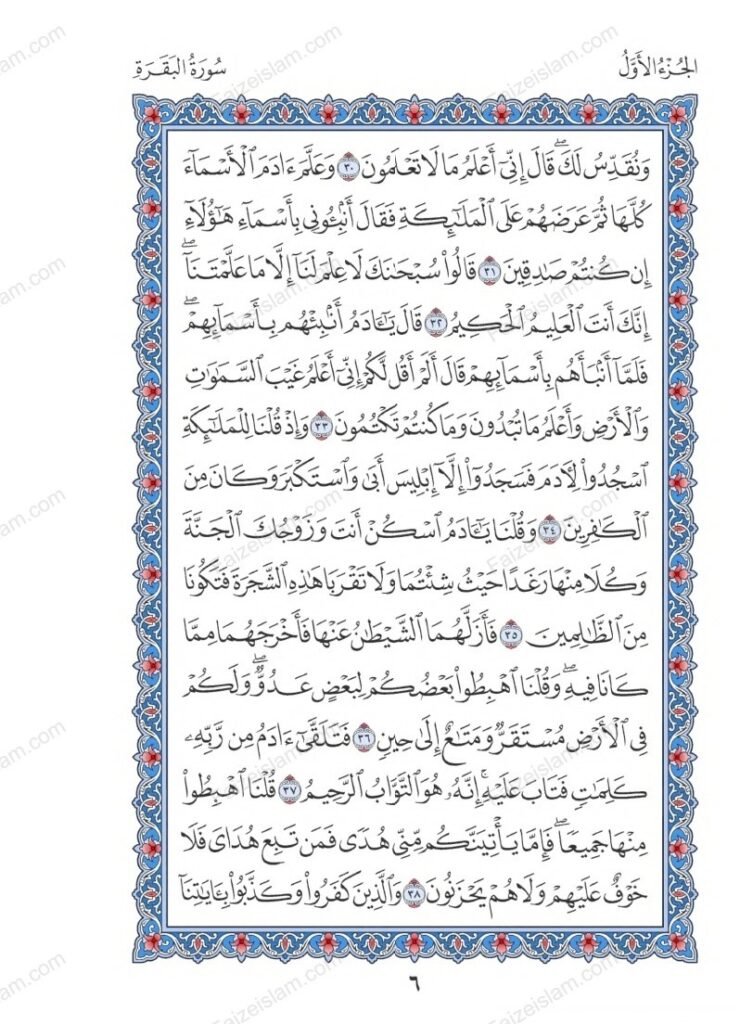 الجُزْءُ الأَوَّلُ
سُورَةُ البَقَرَةِ
وَنُقَدِّسُ لَكَ ۖ قَالَ إِنِّىٓ أَعْلَمُ مَا لَا تَعْلَمُونَ ٣٠ وَعَلَّمَ ءَادَمَ ٱلْأَسْمَآءَ
كُلَّهَا ثُمَّ عَرَضَهُمْ عَلَى ٱلْمَلَـٰٓئِكَةِ فَقَالَ أَنۢبِـُٔونِى بِأَسْمَآءِ هَـٰٓؤُلَآءِ
إِن كُنتُمْ صَـٰدِقِينَ ٣١ قَالُوا۟ سُبْحَـٰنَكَ لَا عِلْمَ لَنَآ إِلَّا مَا عَلَّمْتَنَآ ۖ
إِنَّكَ أَنتَ ٱلْعَلِيمُ ٱلْحَكِيمُ ٣٢ قَالَ يَـٰٓـَٔادَمُ أَنۢبِئْهُم بِأَسْمَآئِهِمْ ۖ
فَلَمَّآ أَنۢبَأَهُم بِأَسْمَآئِهِمْ قَالَ أَلَمْ أَقُل لَّكُمْ إِنِّىٓ أَعْلَمُ غَيْبَ ٱلسَّمَـٰوَٰتِ
وَٱلْأَرْضِ وَأَعْلَمُ مَا تُبْدُونَ وَمَا كُنتُمْ تَكْتُمُونَ ٣٣ وَإِذْ قُلْنَا لِلْمَلَـٰٓئِكَةِ
ٱسْجُدُوا۟ لِـَٔادَمَ فَسَجَدُوٓا۟ إِلَّآ إِبْلِيسَ أَبَىٰ وَٱسْتَكْبَرَ وَكَانَ مِنَ
ٱلْكَـٰفِرِينَ ٣٤ وَقُلْنَا يَـٰٓـَٔادَمُ ٱسْكُنْ أَنتَ وَزَوْجُكَ ٱلْجَنَّةَ
وَكُلَا مِنْهَا رَغَدًا حَيْثُ شِئْتُمَا وَلَا تَقْرَبَا هَـٰذِهِ ٱلشَّجَرَةَ فَتَكُونَا
مِنَ ٱلظَّـٰلِمِينَ ٣٥ فَأَزَلَّهُمَا ٱلشَّيْطَـٰنُ عَنْهَا فَأَخْرَجَهُمَا مِمَّا
كَانَا فِيهِ ۖ وَقُلْنَا ٱهْبِطُوا۟ بَعْضُكُمْ لِبَعْضٍ عَدُوٌّ ۖ وَلَكُمْ
فِى ٱلْأَرْضِ مُسْتَقَرٌّ وَمَتَـٰعٌ إِلَىٰ حِينٍ ٣٦ فَتَلَقَّىٰٓ ءَادَمُ مِن رَّبِّهِۦ
كَلِمَـٰتٍ فَتَابَ عَلَيْهِ ۚ إِنَّهُۥ هُوَ ٱلتَّوَّابُ ٱلرَّحِيمُ ٣٧ قُلْنَا ٱهْبِطُوا۟
مِنْهَا جَمِيعًا ۖ فَإِمَّا يَأْتِيَنَّكُم مِّنِّى هُدًى فَمَن تَبِعَ هُدَاىَ فَلَا
خَوْفٌ عَلَيْهِمْ وَلَا هُمْ يَحْزَنُونَ ٣٨ وَٱلَّذِينَ كَفَرُوا۟ وَكَذَّبُوا۟ بِـَٔايَـٰتِنَآ
٦
Faizeislam.com